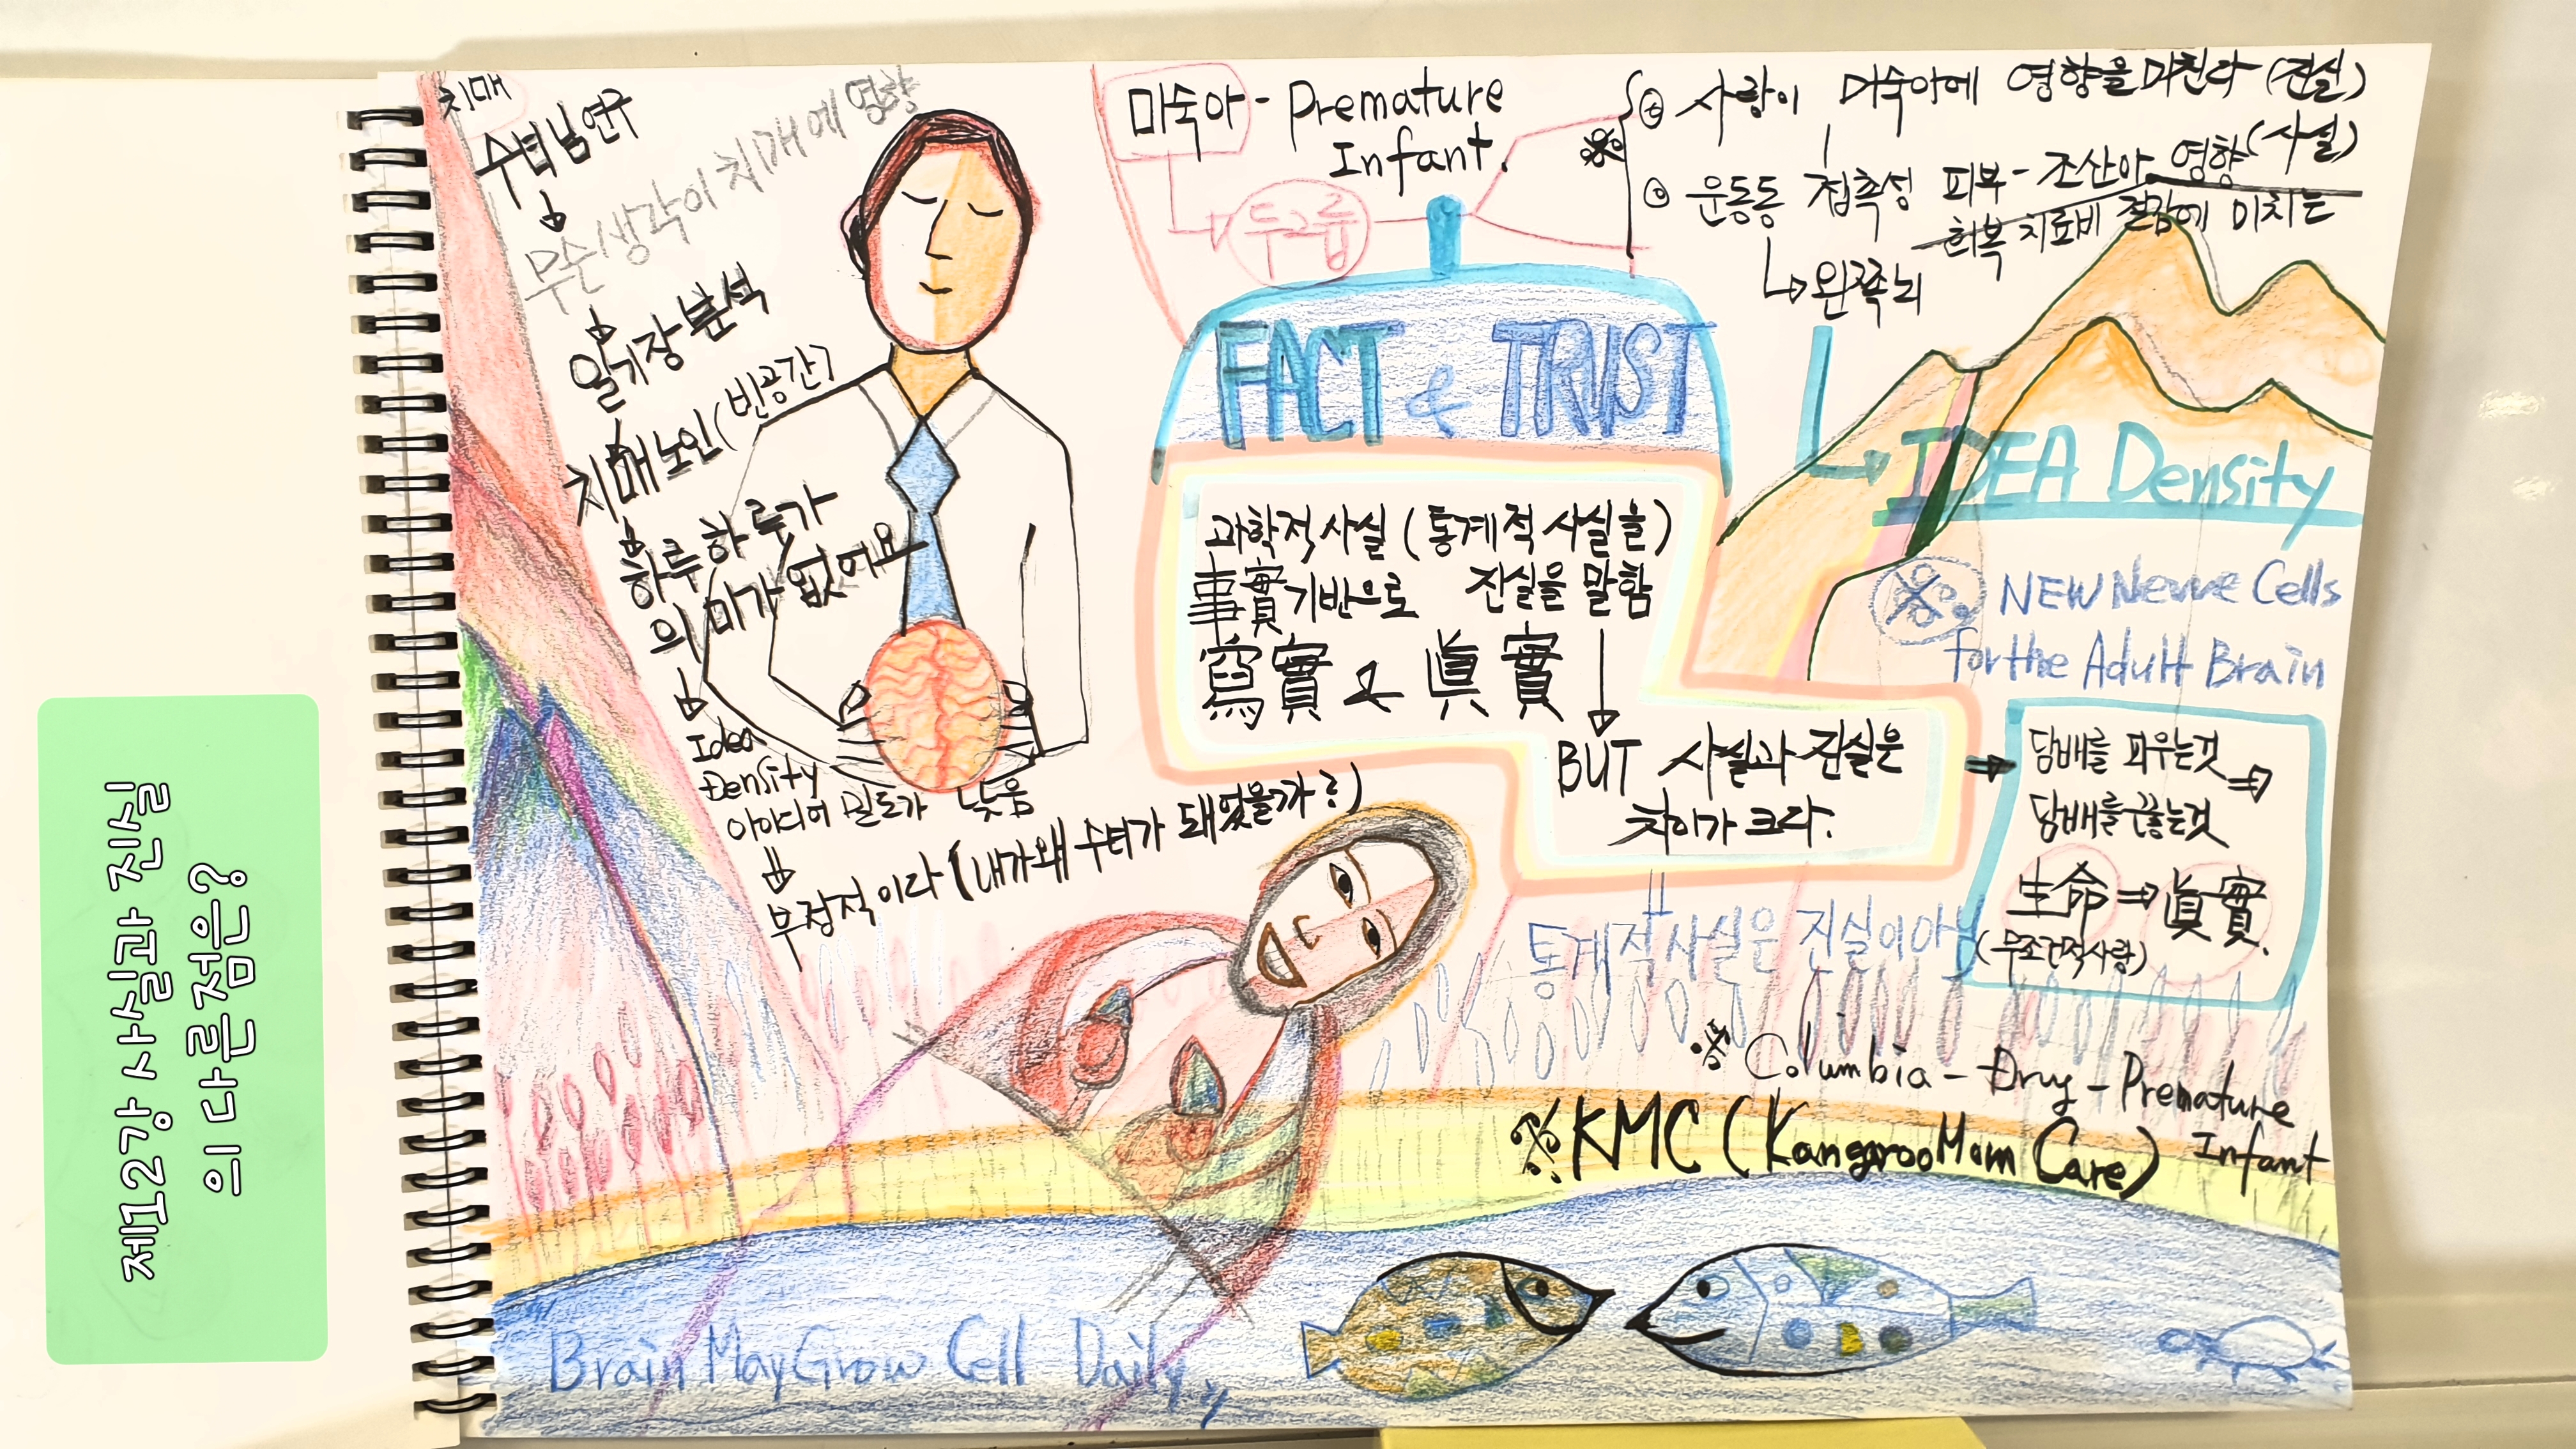 제12강 사실과 진실
의 다른점은?
치매
수녀님연구
무슨생각이 치매에 영향
일기장분석
치매노인(빈공간)
하루하루가
의미가없어요
Idea
Density
아이디어 밀도가 낮음
부정적이다 (내가왜 수녀가 돼었을까?)
미숙아 - Premature
Infant.
두그룹
사랑이 미숙아에 영향을미친다 (진실)
운동동 접촉성 피부 - 조산아 영향 (사실)
회복 치료비 절감에 미치는
왼쪽뇌
FACT & TRUST
과학적사실 (통계적 사실을)
事實기반으로 진실을 말함
寫實 & 眞實
BUT 사실과 진실은
차이가 크다.
통계적사실은 진실이아
IDEA Density
NEW Nerve Cells
for the Adult Brain
담배를 피우는것
담배를 끊는것
生命 ⇒ 眞實.
(무조건적사랑)
※ Columbia - Drug - Premature
Infant
※ KMC (Kangaroo Mom Care)
Brain May Grow Cell Daily